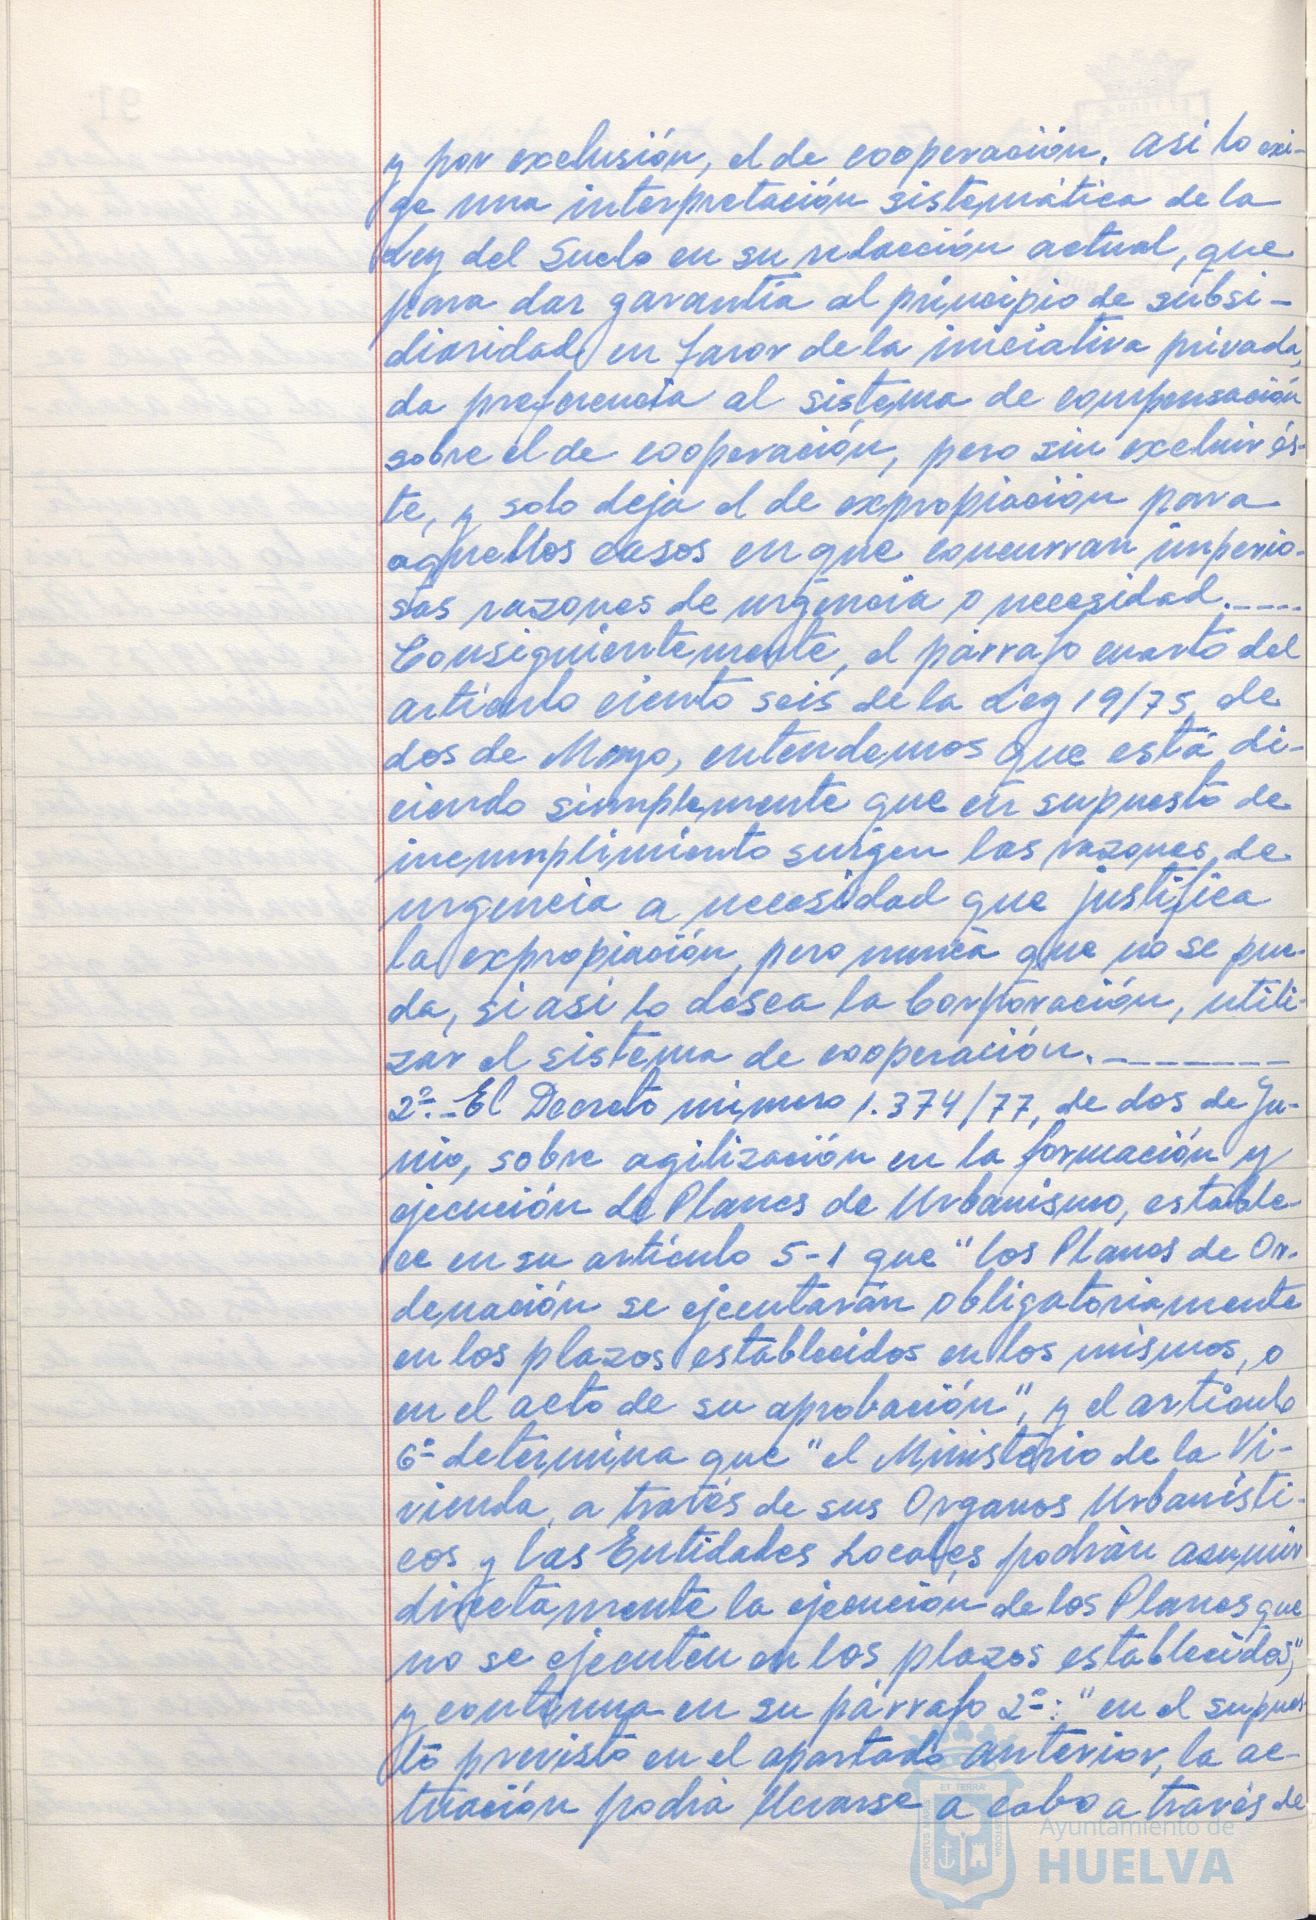 y por exclusión, el de cooperación. Asi lo exi-
ge una interpretación sistemática de la
Ley del Suelo en su redacción actual, que
para dar garantía al principio de subsi-
diaridad en favor de la iniciativa privada,
da preferencia al sistema de compensación
sobre el de cooperación, pero sin excluir és-
te, y solo deja el de expropiación para
aquellos casos en que concurran imperio-
sas razones de urgencia o necesidad.----
Consiguientemente, el párrafo cuarto del
artículo ciento seis de la Ley 19/75, de
dos de Mayo, entendemos que está di-
ciendo simplemente que en supuesto de
incumplimiento surgen las razones de
urgencia a necesidad que justifica
la expropiación, pero nunca que no se pue-
da, si asi lo desea la Corporación, utili-
zar el sistema de cooperación.-------
2º.- El Decreto número 1.374/77, de dos de Ju-
nio, sobre agilización en la formación y
ejecución de Planes de Urbanismo, estable-
ce en su artículo 5-1 que "los Planes de Or-
denación se ejecutarán obligatoriamente
en los plazos establecidos en los mismos, o
en el acto de su aprobación", y el artículo
6º determina que "el Ministerio de la Vi-
vienda, a través de sus Organos Urbanísti-
cos y las Entidades Locales, podrán asumir
directamente la ejecución de los Planes que
no se ejecuten en los plazos establecidos",
y continua en su párrafo 2º: "en el supues-
to previsto en el apartado anterior, la ac-
tuación podrá llevarse a cabo a través de
ET TERRA
PORTUS MARIS
CUSTODIA
Ayuntamiento de
HUELVA